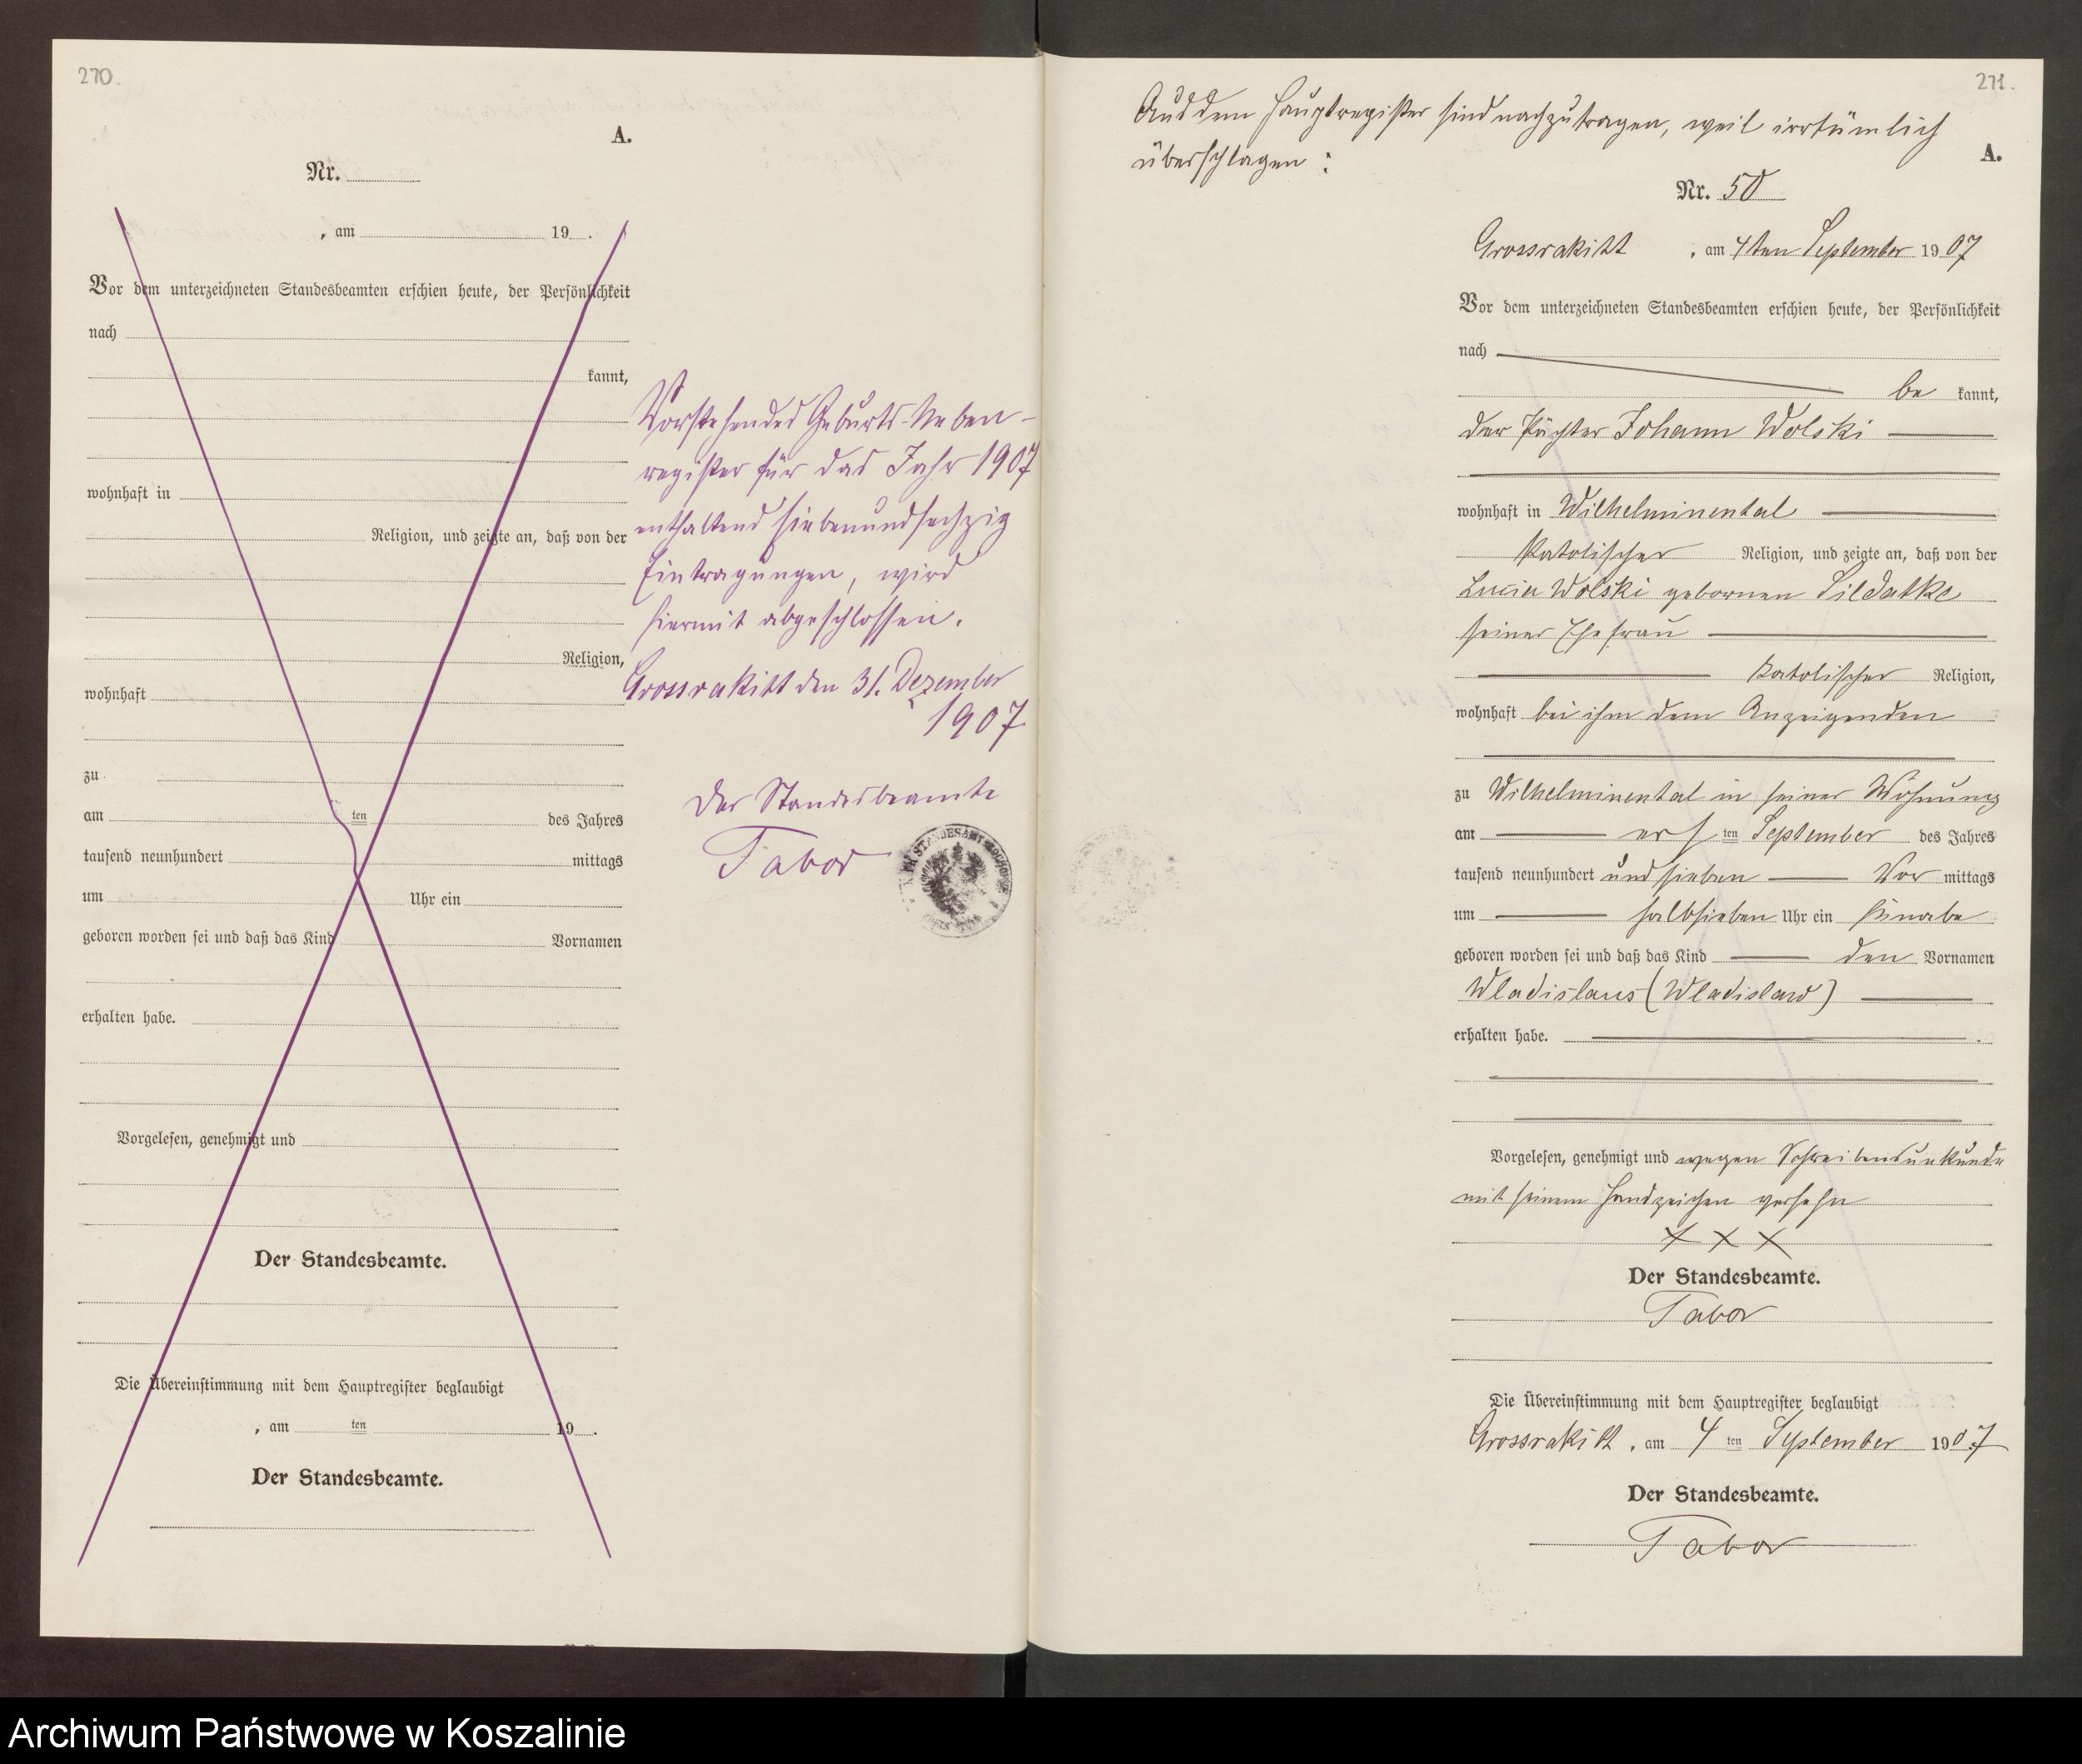 270.
A.
Nr.
, am 19 .
Vor dem unterzeichneten Standesbeamten erschien heute, der Persönlichkeit
nach
kannt,
wohnhaft in
Religion, und zeigte an, daß von der
Religion,
wohnhaft
zu
am ten des Jahres
tausend neunhundert mittags
um Uhr ein
geboren worden sei und daß das Kind Vornamen
erhalten habe.
Vorgelesen, genehmigt und
Der Standesbeamte.
Die Übereinstimmung mit dem Hauptregister beglaubigt
, am ten 19 .
Der Standesbeamte.
Vorstehendes Geburts-Neben-
register für das Jahr 1907
enthaltend siebenundsechzig
Eintragungen, wird
hiermit abgeschlossen.
Grossrakitt den 31. Dezember
1907
Der Standesbeamte
Tabor
271.
Aus dem Hauptregister sind nachzutragen, weil irrtümlich
überschlagen :
A.
Nr. 50
Grossrakitt , am 4ten September 1907
Vor dem unterzeichneten Standesbeamten erschien heute, der Persönlichkeit
nach
be kannt,
der Pächter Johann Wolski
wohnhaft in Wilhelminental
katolischer Religion, und zeigte an, daß von der
Lucia Wolski gebornen Sildatke
seiner Ehefrau
katolischer Religion,
wohnhaft bei ihm dem Anzeigenden
zu Wilhelminental in seiner Wohnung
am ersten September des Jahres
tausend neunhundert und sieben Vor mittags
um halbsieben Uhr ein Knabe
geboren worden sei und daß das Kind den Vornamen
Wladislaus (Wladislaw)
erhalten habe.
Vorgelesen, genehmigt und wegen Schreibensunkunde
mit seinem Handzeichen versehn
x x x
Der Standesbeamte.
Tabor
Die Übereinstimmung mit dem Hauptregister beglaubigt
Grossrakitt , am 4 ten September 1907
Der Standesbeamte.
Tabor
Archiwum Państwowe w Koszalinie